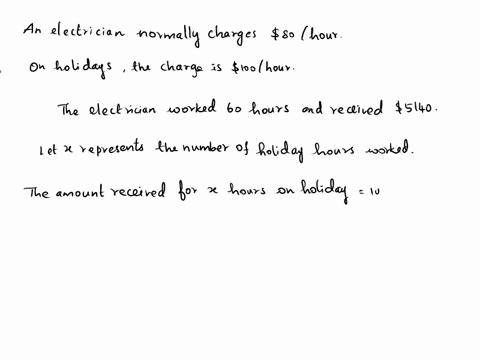 An electrician normally charges $80/hour.
On holidays, the charge is $100/hour.
The electrician worked 60 hours and received $5140.
Let x represents the number of holiday hours worked.
The amount received for x hours on holiday = 10